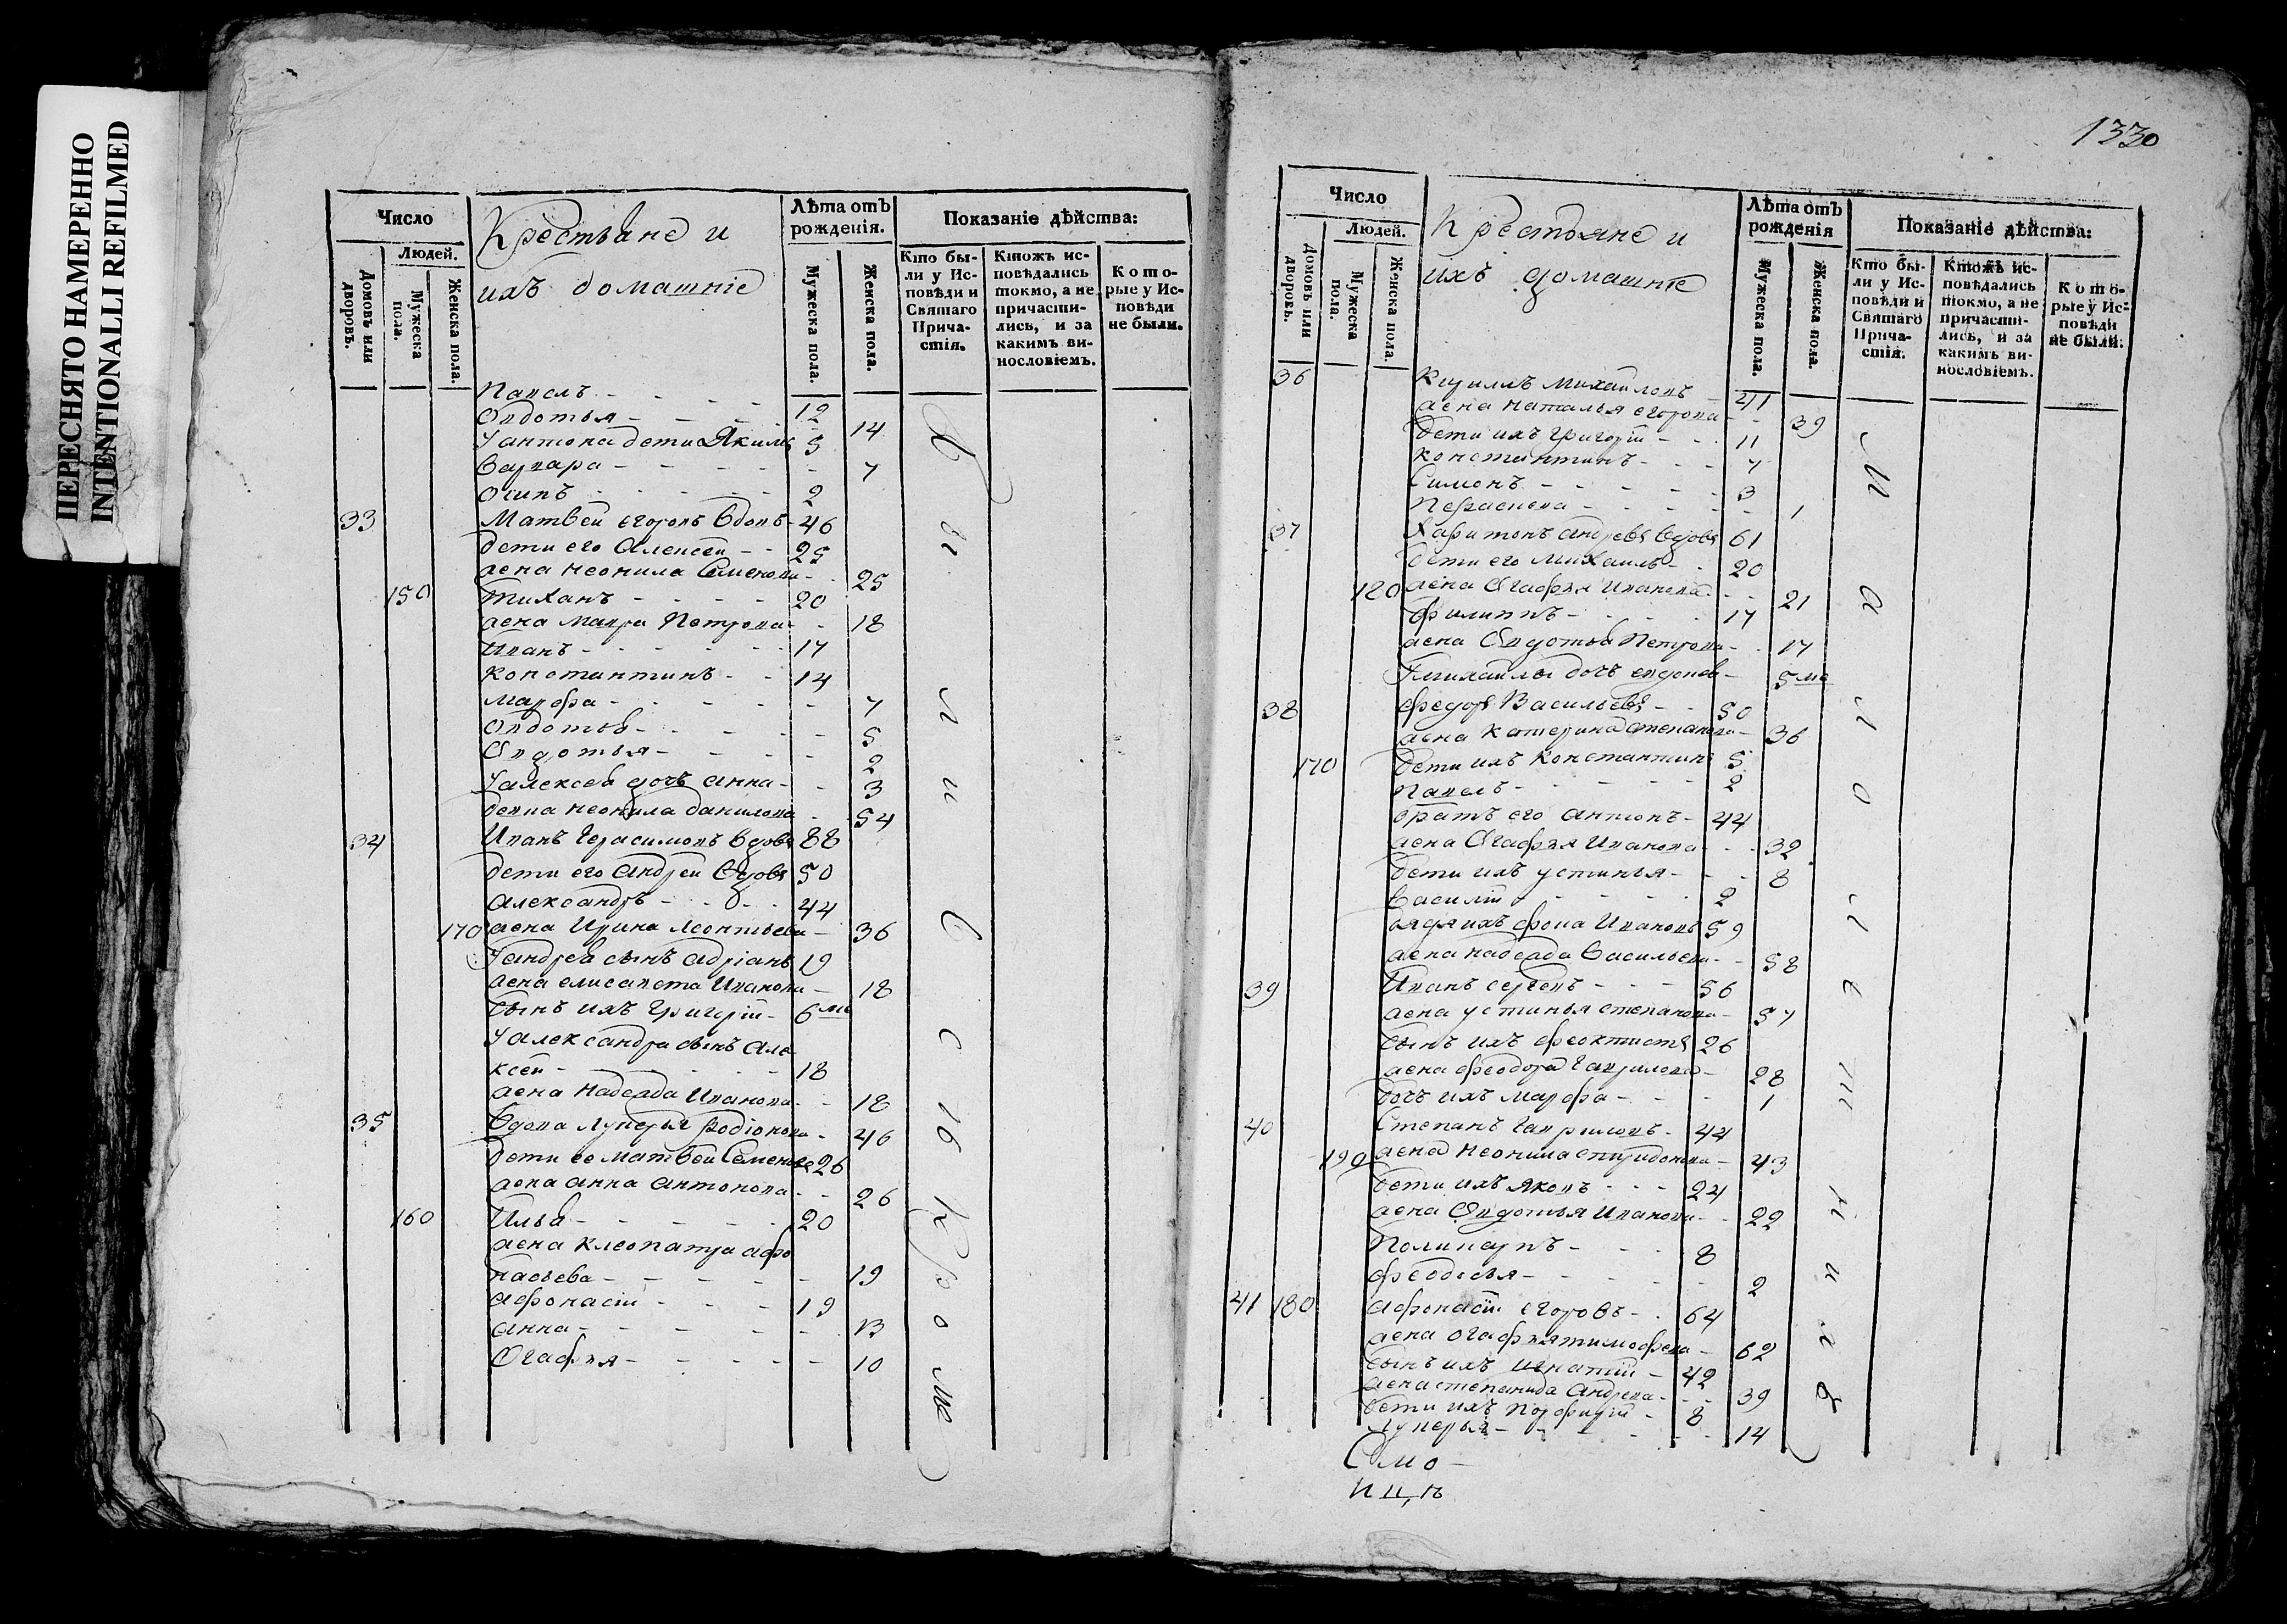 ПЕРЕСНЯТО НАМЕРЕННО
INTENTIONALLI REFILMED
Число
Людей.
Домовъ или дворовъ.
Мужеска пола.
Женска пола.
Крестьяне и
ихъ домашніе
Лѣта отъ рожденія.
Мужеска пола.
Женска пола.
Показаніе дѣйства:
Кто бы-
ли у Ис-
повѣди и
Святаго
Прича-
стія.
Ктожъ ис-
повѣдались
токмо, а не
причасти-
лись, и за
какимъ ви-
нословіемъ.
Кото-
рые у Ис-
повѣди
не были.
Павелъ 12
Овдотья 14
У антона дети Якимъ 5
Варвара 7
Осипъ 2
33 Матвей егоровъ вдовъ 46
дети его Алексей 25
жена неонила Семенова 25
150 Тиханъ 20
жена Мавра Петрова 18
Иванъ 17
Константинъ 14
Марфа 7
Овдотья 5
Овдотья 2
У алексея дочь анна 3
неонила данилова 54
34 Иванъ Герасимовъ вдовъ 88
дети его Андрей Вдовъ 50
Александръ 44
170 жена Ирина Леонтьева 36
У андрея сынъ адріанъ 19
жена елисавета Иванова 18
сынъ ихъ Григорій 6 ме
У александра сынъ Але
ксей 18
жена Надежда Иванова 18
35 Вдова Лукерья Родіонова 46
дети ее Матвей Семеновъ 26
жена анна антонова 26
160 Илья 20
жена Клеопатра афо
насьева 19
афонасій 19
анна 13
Огафья 10
1330
Число
Людей.
Домовъ или дворовъ.
Мужеска пола.
Женска пола.
Крестьяне и
ихъ домашніе
Лѣта отъ рожденія
Мужеска пола.
Женска пола.
Показаніе дѣйства:
Кто бы-
ли у Ис-
повѣди и
Святаго
Прича-
стія.
Ктожъ ис-
повѣдались
токмо, а не
причасти-
лись, и за
какимъ ви-
нословіемъ.
Кото-
рые у Ис-
повѣди
не были.
36 Кирилъ Михайловъ 41
жена Наталья егорова 39
дети ихъ Григорій 11
Константинъ 7
Симонъ 3
Перасковя 1
37 Харитонъ андреевъ Вдовъ 61
дети его Михаилъ 20
180 жена Огафья Иванова 21
Филиппъ 17
жена Овдотья Петрова 17
У михайлы дочь 5 ме
38 Федоръ Васильевъ 50
жена Катерина степанова 36
170 дети ихъ Константинъ 5
Павелъ 2
братъ его антонъ 44
жена Огафья Иванова 32
дети ихъ устинья 8
Василій 2
дядя ихъ фока Ивановъ 59
жена надежда Васильева 58
39 Иванъ сергевъ 56
жена устинья степанова 57
сынъ ихъ феоктистъ 26
жена феодора Гаврилова 28
дочь ихъ Марфа 1
40 Степанъ Гавриловъ 44
190 жена неонила спиридонова 43
дети ихъ Яковъ 24
жена Овдотья Иванова 22
Поликарпъ 8
феодосья 2
41 180 афонасій егоровъ 64
жена огафья тимофеева 62
сынъ ихъ игнатій 42
жена степанида Андреева 39
дети ихъ Порфирій 8
Лукерья 14